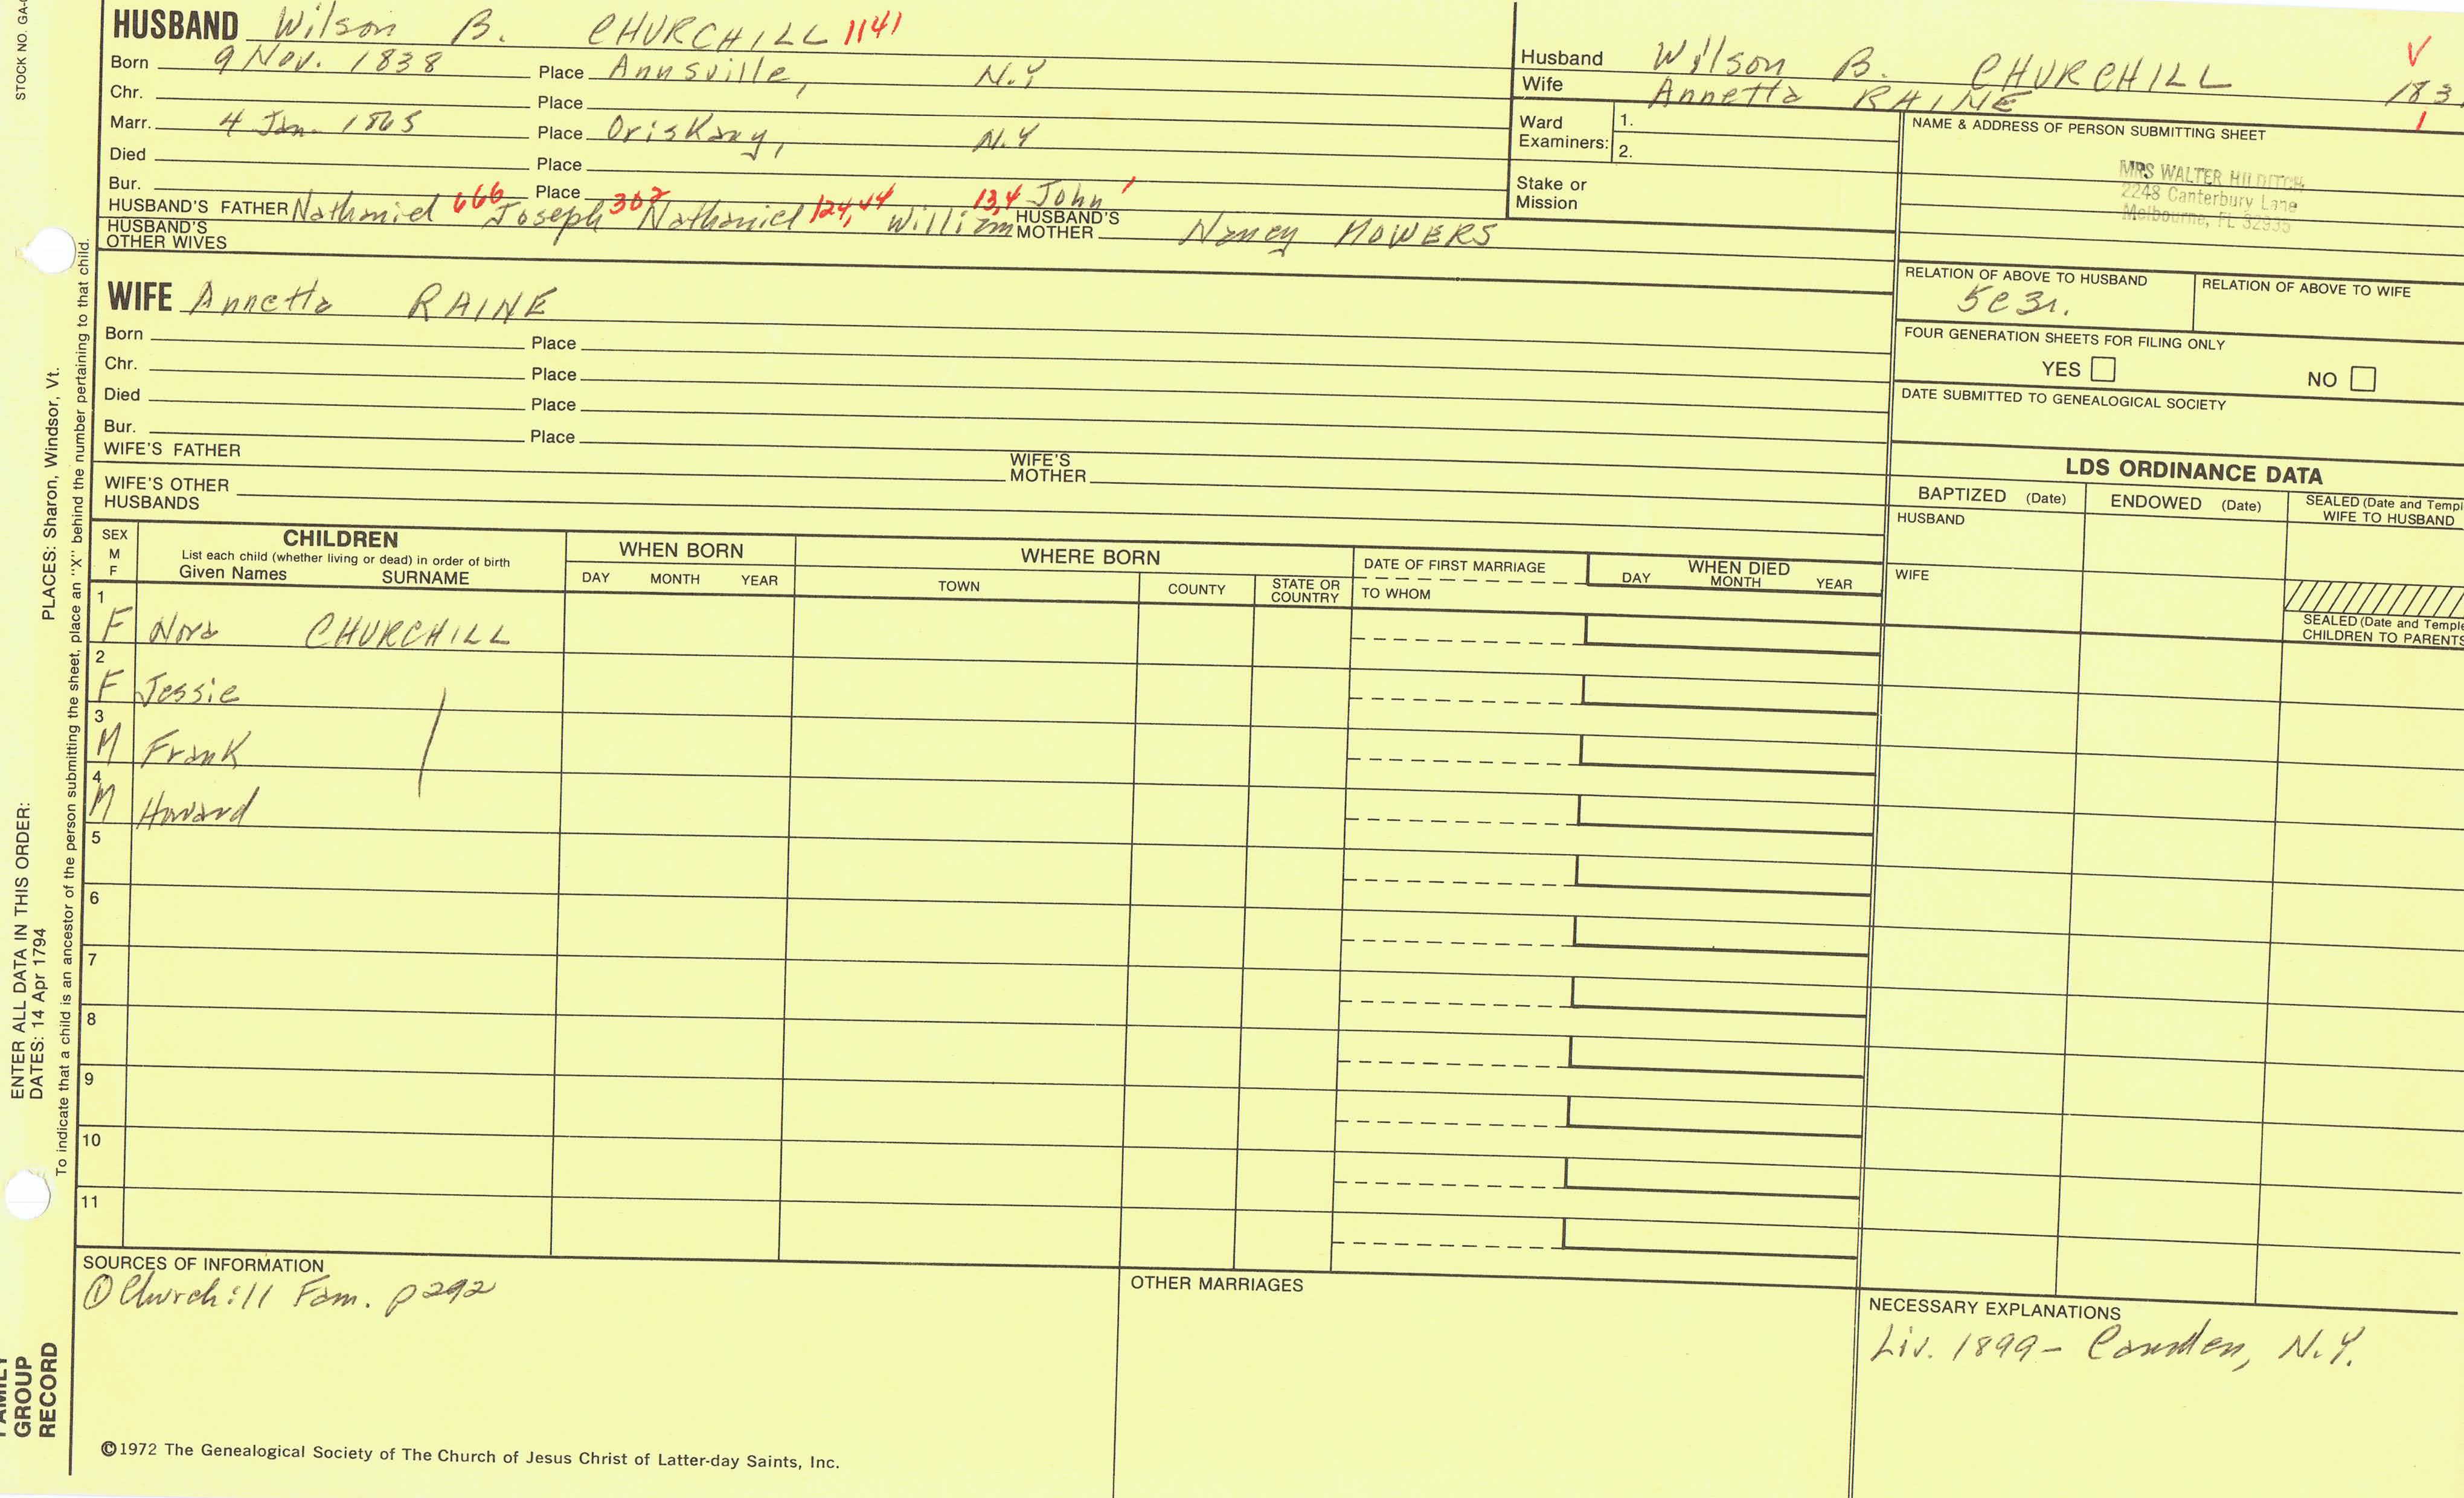 STOCK NO. GA-
PLACES: Sharon, Windsor, Vt.
ENTER ALL DATA IN THIS ORDER:
DATES: 14 Apr 1794
To indicate that a child is an ancestor of the person submitting the sheet, place an "X" behind the number pertaining to that child.
GROUP
RECORD
HUSBAND Wilson B. CHURCHILL 1141
Born 9 Nov. 1838 Place Annsville, N.Y
Chr. Place
Marr. 4 Jan. 1865 Place Oriskany, N.Y
Died Place
Bur. Place
HUSBAND'S FATHER Nathaniel 666 Joseph 302 Nathaniel 124, 44 William 13,4 John 1
HUSBAND'S MOTHER Nancy MOWERS
HUSBAND'S OTHER WIVES
WIFE Annetta RAINE
Born Place
Chr. Place
Died Place
Bur. Place
WIFE'S FATHER WIFE'S MOTHER
WIFE'S OTHER HUSBANDS
Husband Wilson B. CHURCHILL V
Wife Annetta RAINE 183
1
Ward Examiners: 1.
2.
Stake or Mission
NAME & ADDRESS OF PERSON SUBMITTING SHEET
MRS WALTER HILDITCH
2248 Canterbury Lane
Melbourne, FL 32935
RELATION OF ABOVE TO HUSBAND RELATION OF ABOVE TO WIFE
5c3r.
FOUR GENERATION SHEETS FOR FILING ONLY
YES NO
DATE SUBMITTED TO GENEALOGICAL SOCIETY
LDS ORDINANCE DATA
BAPTIZED (Date) ENDOWED (Date) SEALED (Date and Templ
WIFE TO HUSBAND
HUSBAND
WIFE
SEALED (Date and Temple
CHILDREN TO PARENTS
SEX M F
CHILDREN
List each child (whether living or dead) in order of birth
Given Names SURNAME
WHEN BORN
DAY MONTH YEAR
WHERE BORN
TOWN COUNTY STATE OR COUNTRY
DATE OF FIRST MARRIAGE
TO WHOM
WHEN DIED
DAY MONTH YEAR
1
F Nora CHURCHILL
2
F Jessie
3
M Frank
4
M Howard
5
6
7
8
9
10
11
SOURCES OF INFORMATION
① Churchill Fam. p292
OTHER MARRIAGES
NECESSARY EXPLANATIONS
Liv. 1899- Camden, N.Y.
©1972 The Genealogical Society of The Church of Jesus Christ of Latter-day Saints, Inc.